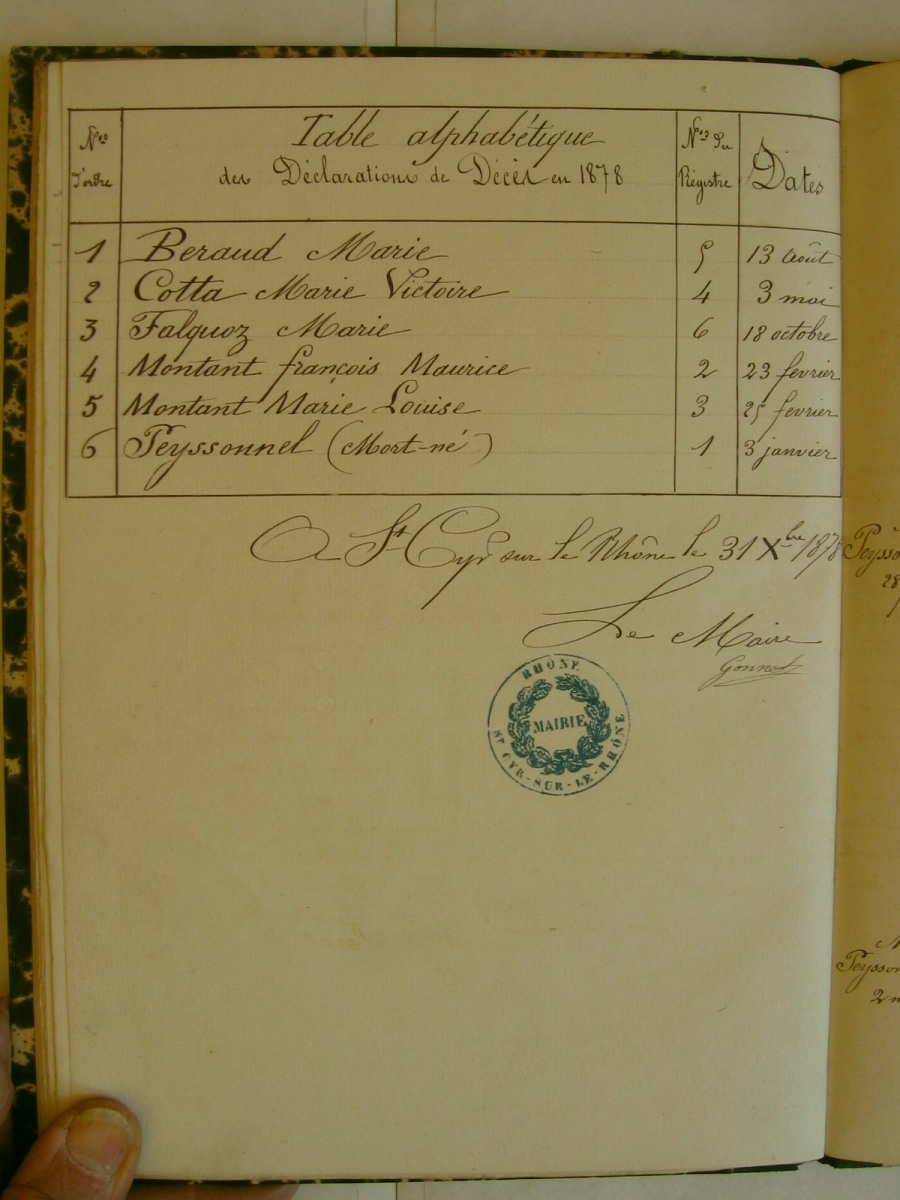 Nos d'ordre
Table alphabétique
des Déclarations de Décès en 1878
Nos du Régistre
Dates
1 Beraud Marie 5 13 août
2 Cotta Marie Victoire 4 3 mai
3 Falquoz Marie 6 18 octobre
4 Montant françois Maurice 2 23 fevrier
5 Montant Marie Louise 3 25 fevrier
6 Peyssonnel (Mort-né) 1 3 janvier
A St Cyr sur le Rhône le 31 Xbre 1878
Le Maire
Gonnet
RHÔNE
MAIRIE
ST CYR-SUR-LE-RHÔNE